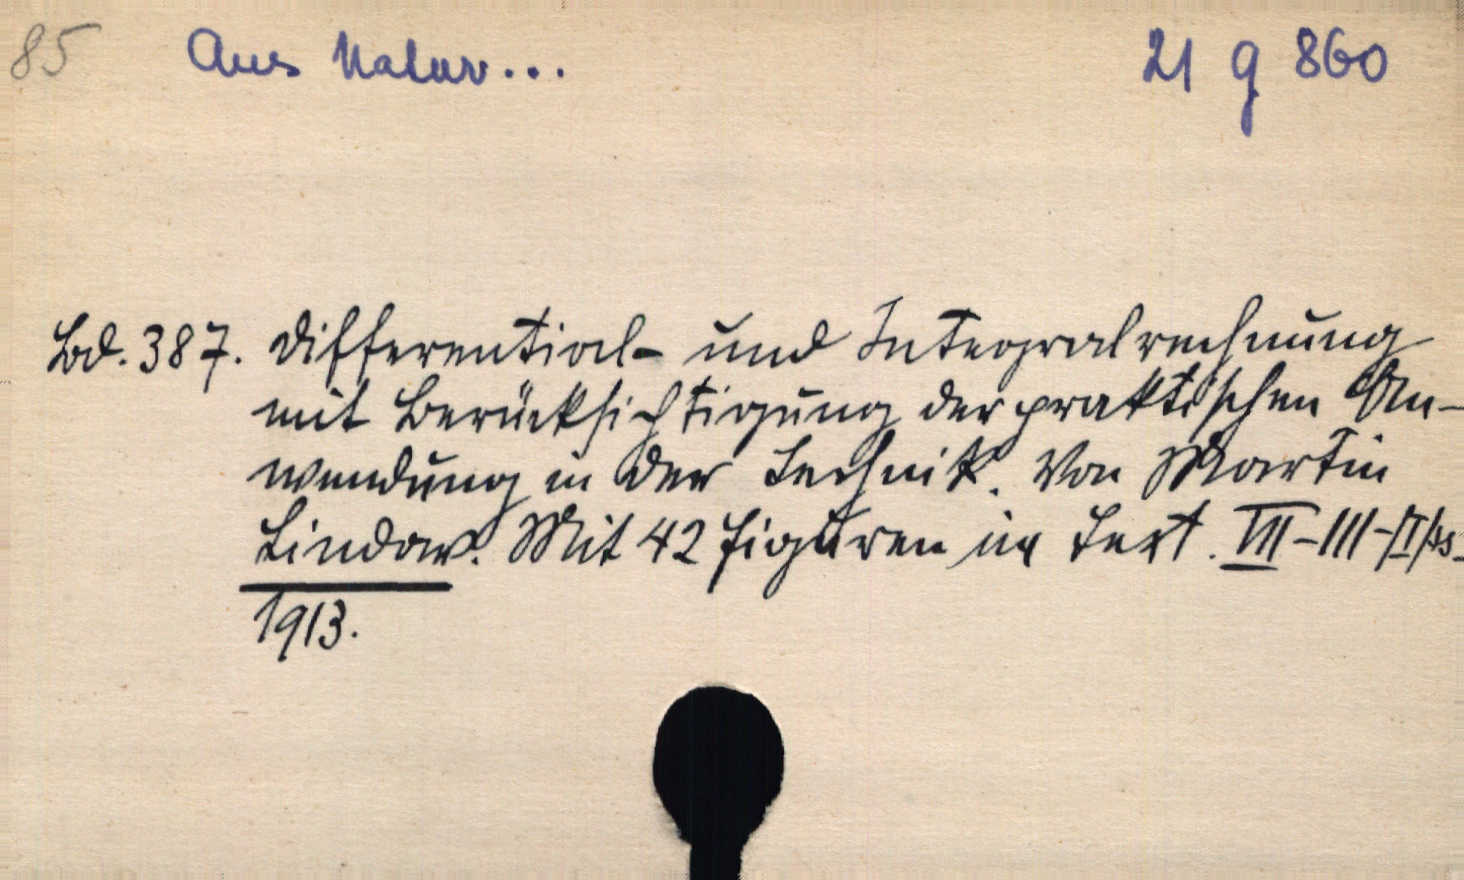 85 Aus Natur... 21 g 860
Bd. 387. Differential- und Integralrechnung
mit Berücksichtigung der praktischen An-
wendung in der Technik. Von Martin
Lindow. Mit 42 Figuren im Text. VII-111-
1913.